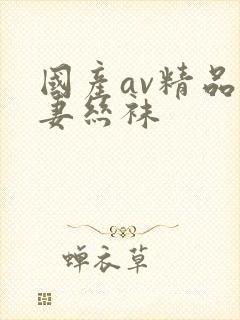 國產av精品
妻絲袜
蝉衣草